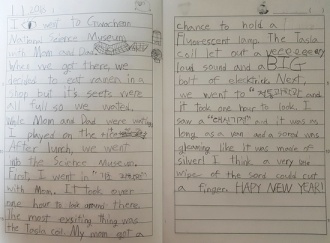 I went to Gwacheon
National Science Museum
with Mom and Dad
When we got there, we
decided to eat ramen in a
shop but it's seets were
all full so we waited,
While Mom and Dad were waiting
I played on the
After lunch, we went
into the Science Museum.
First, I went in "
with Mom. It took over
one hour to look around there
The most exsiting thing was
the Tasla coil. My mom got a
chance to hold a
Fluorescent lamp. The Tasla
coil let out a veeeeeery
loud sound and a BIG
bolt of elecktrick. Next,
we went to "
it took one hour to look, I
saw a " and it was as
long as a van and a sord was
gleaming like it was made of
silver! I think, a very
wipe of the sord could cut
a finger. HAPY NEW YEAR!